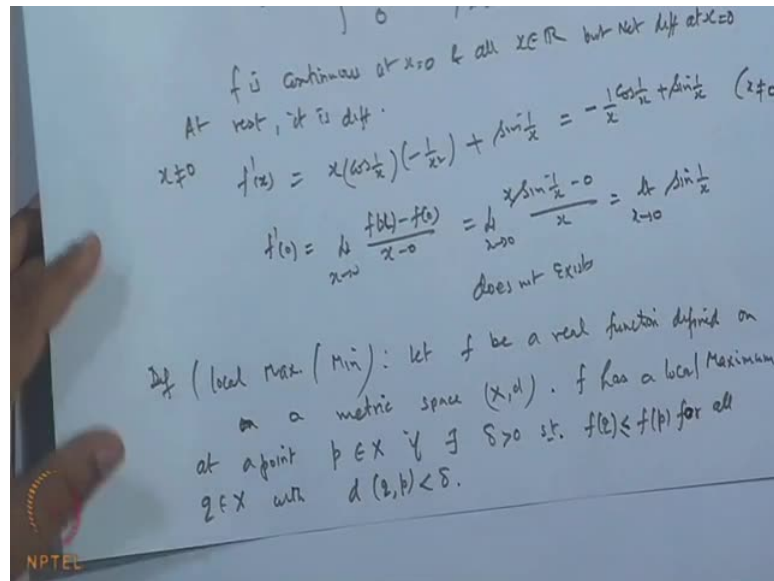 0
f is continuous at x=0 & all x∈ℝ but Not diff at x=0
At rest, it is diff.
x≠0 f'(x) = x(cos 1/x)(-1/x²) + sin 1/x = -1/x cos 1/x + sin 1/x (x≠0
f'(0) = lt x→0 f(x)-f(0) / x-0 = lt x→0 x sin 1/x - 0 / x = lt x→0 sin 1/x
does not Exist
Def (local Max. / Min): Let f be a real function defined on
a metric space (X,d). f has a local Maximum
at a point p∈X if ∃ δ>0 st. f(q)≤f(p) for all
q∈X with d(q,p)<δ.
NPTEL